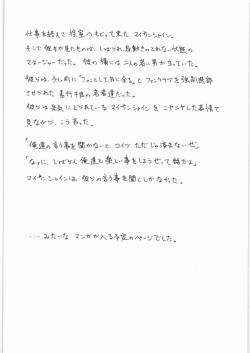 仕事を終えて控室へもどって来たマイサンシャイン。
そこで彼女が見たものは、しばられ、身動きのとれない状態の
マネージャーだった。彼の横には二人の若い男が立っていた。
彼らは、少し前に「ファンとして目に余る」と、ファンクラブを強制退部
させられた素行不良の若者達だった。
彼らは呆気にとられているマイサンシャインをニヤニヤした表情で
見ながら、こう言った。
「俺達の言う事を聞かないと、コイツただじゃ済まないぜ。」
「なぁに、しばらく俺達と楽しい事をしようぜって話だよ」
マイサンシャインは彼らの言う事を聞くしかなかった。
・・・みたいなマンガが入る予定のページでした。